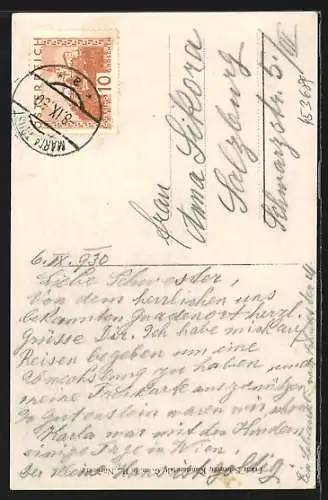 ÖSTERREICH
10
MARIAZELL
8.IX.30
Frau
Anna Sikora
Salzburg
Schwarzstr. 5/III
6.IX.930
Liebe Schwester,
Von dem herrlichen uns
bekannten Gnadenort herzl.
Grüsse Dir. Ich habe mich auf
Reisen begeben um eine
Abwechslung zu haben und
meine Freikarte auszunützen
In Gutenstein waren wir schon
Karla war mit den Kindern
einige Tage in Wien,
der Kleine